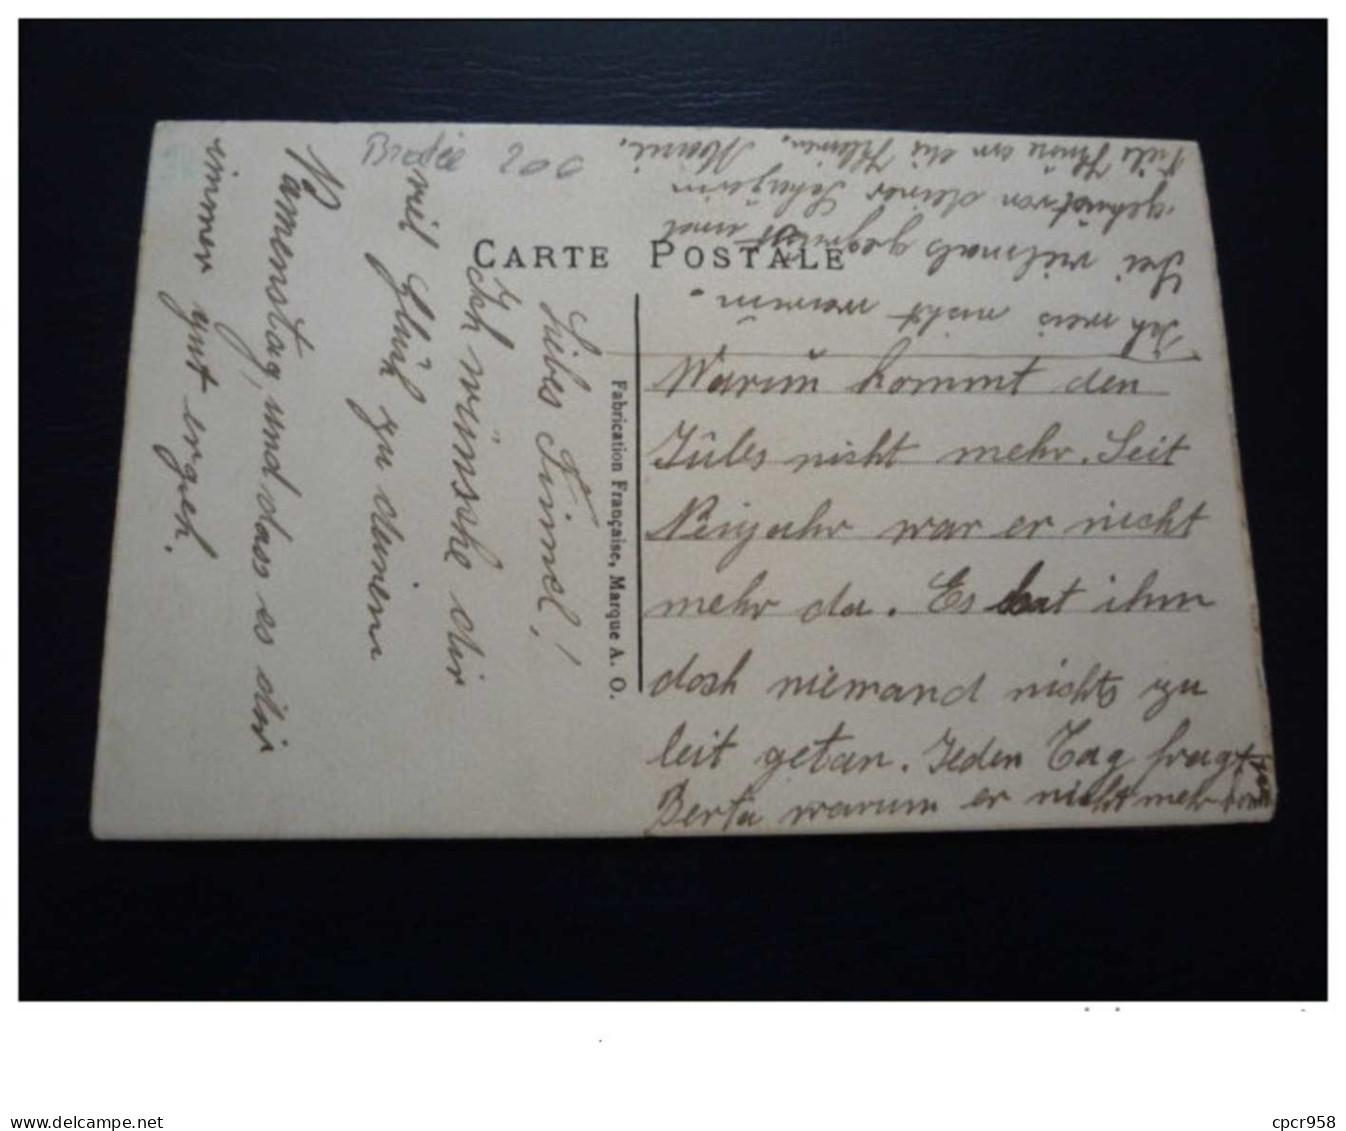 200
CARTE POSTALE
Fabrication Française, Marque A. O.
Liebes Finnel!
Ich wünsche dir
viel Glück zu deinem
Namenstag, und dass es dir
immer gut ergeh.
Warum kommt den
Jûles nicht mehr. Seit
Neujahr war er nicht
mehr da. Es hat ihm
doch niemand nichts zu
leit getan. Jeden Tag fragt
Berta warum er nicht mehr
Ich weis nicht warum.
Sei vielmals gegrüsst und
geküst von deiner
an die Kleinen,
delcampe.net
cpcr958